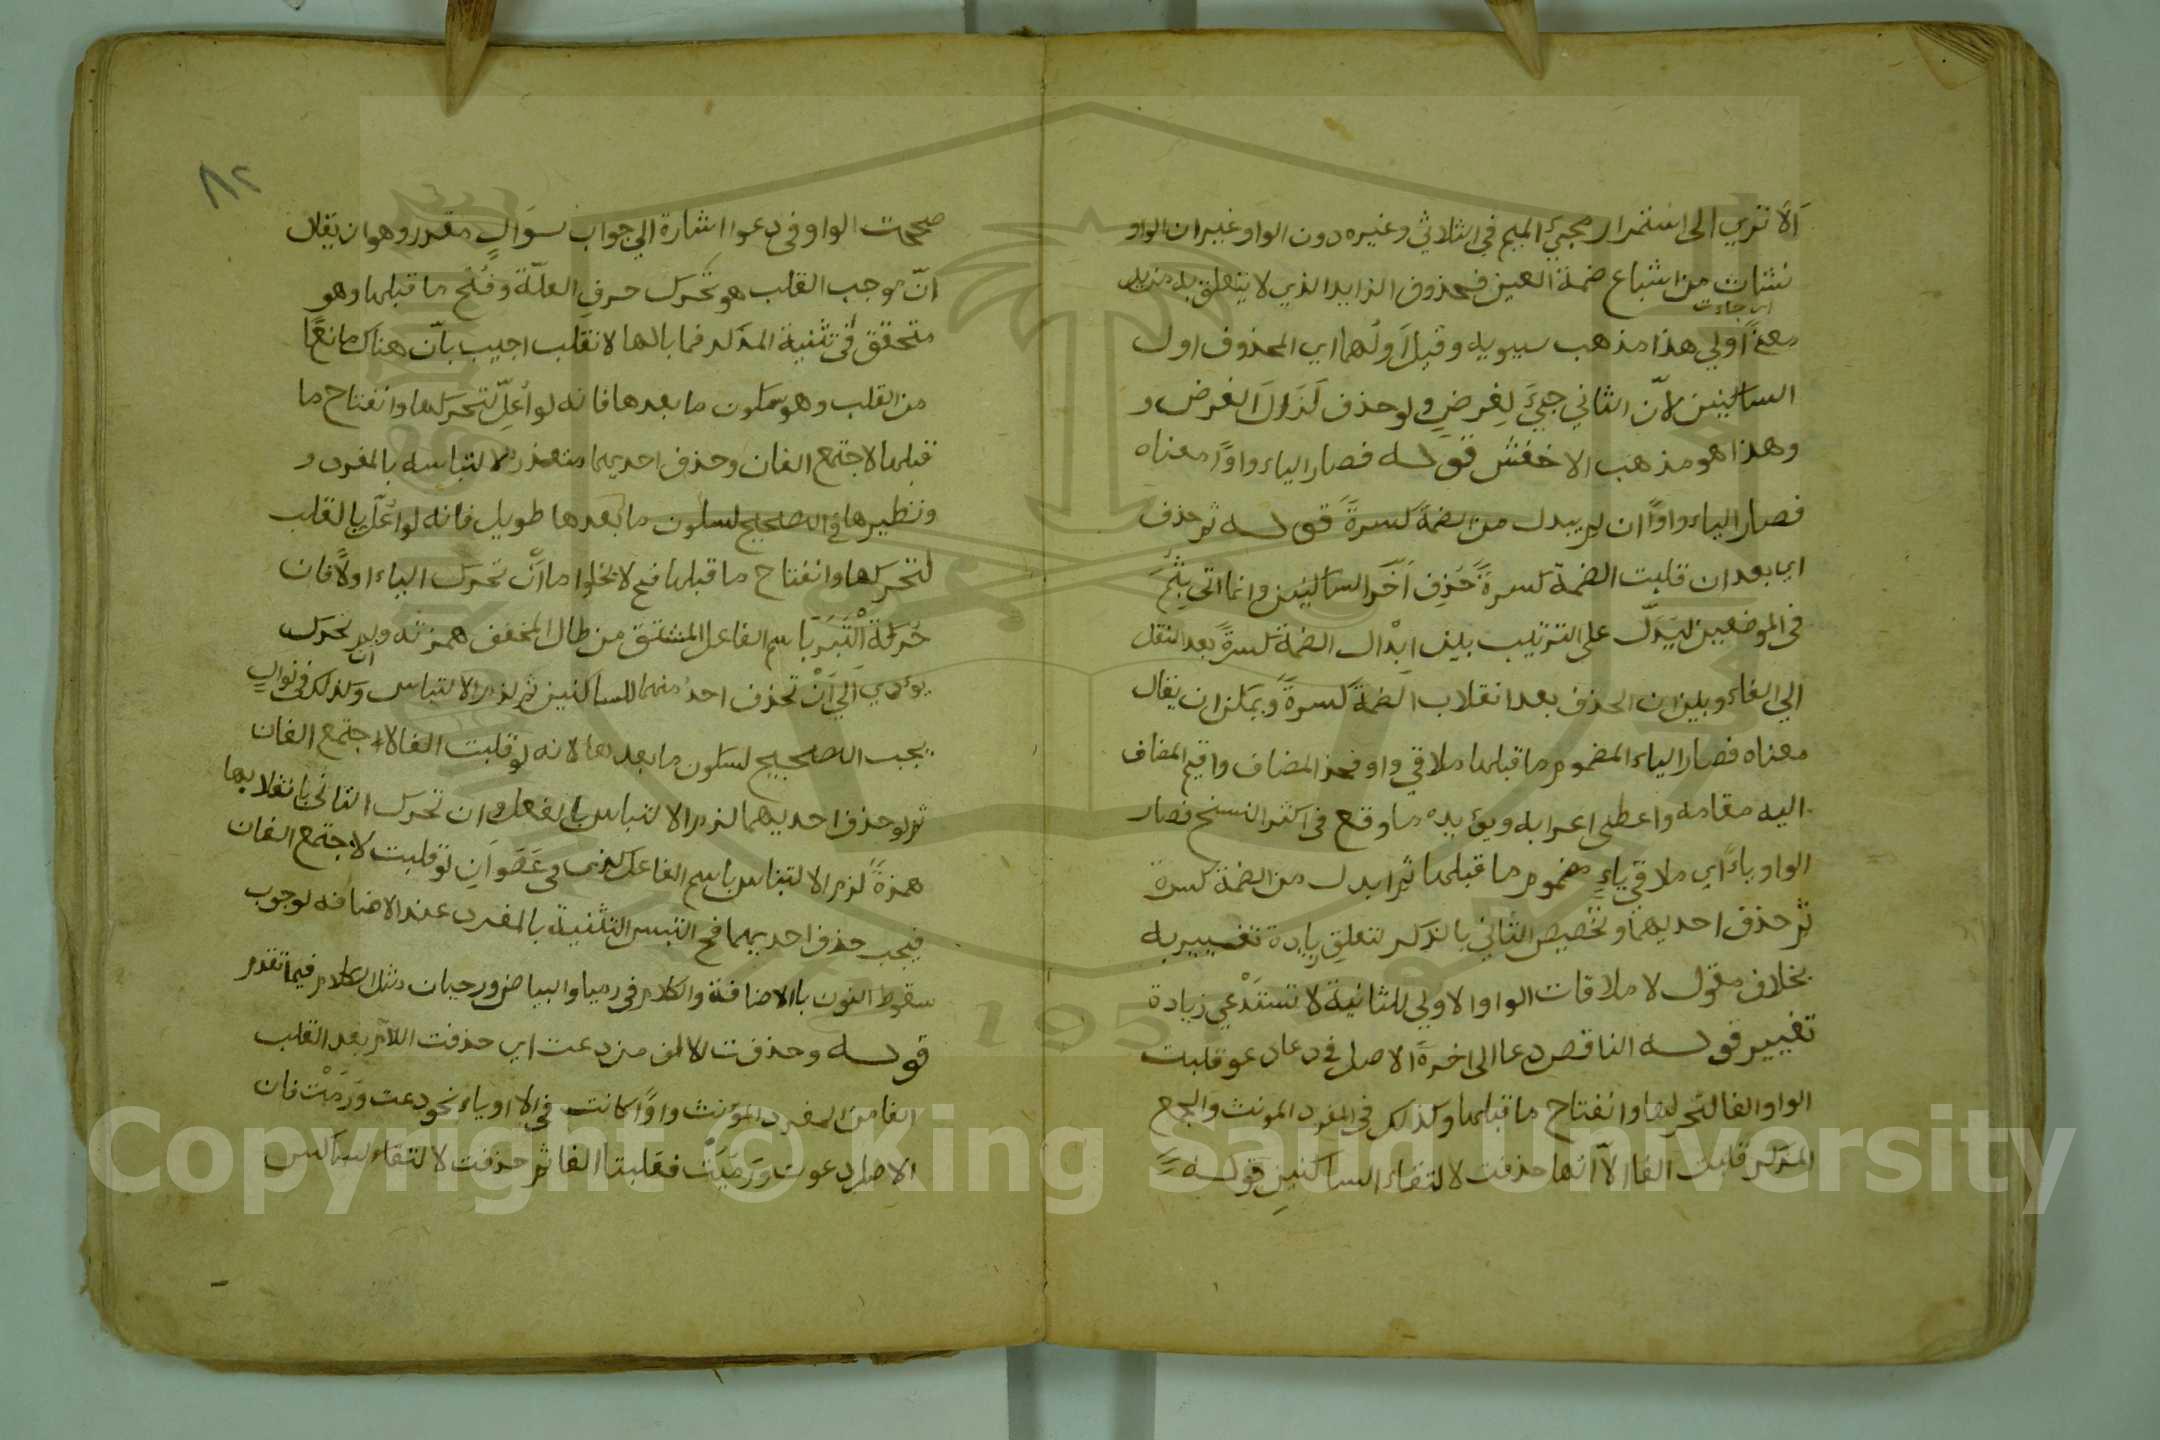 ألا تري الى استمرار مجيئ الميم في الثلاثي وغيره دون الواو غير ان الواو
نشات من اشباع ضمة العين فحذوف الزايد الذي لا يتعلق به مزيد
اي جاءت
معنًا أولي هذا مذهب سيبويه وقيل أولهما اي المحذوف اول
الساكنين لانّ الثاني جيئ لغرضٍ ولو حذف لزول الغرض و
وهذا هو مذهب الاخفش قوله فصار الياء واوًا معناه
فصار الياء واوًا ان لم يبدل من الضمة كسرةً قوله ثم حذف
اي بعد ان قلبت الضمة كسرةً حُذِف آخر الساكنين وانما اتي بثُمَّ
في الموضعين ليدلّ على الترتيب بين ابْدال الضمة كسرةً بعد النقل
الي الفاء وبين ان الحذف بعد انقلاب الضمة كسرةً ويمكن ان يقال
معناه فصار الياء المضموم ما قبلها ملاقي واو فحذ المضاف واقيم المضاف
اليه مقامه واعطى اعرابه ويؤيده ما وقع في اكثر النسخ فصار
الواو ياءً اي ملاقي ياءٍ مضموم ما قبلها ثم ابدل من الضمة كسرة
ثم حذف احديهما وتخصيص الثاني بالذكر لتعلق زيادة تغيير به
بخلاف مقول لا ملاقات الواو الاولي للثانية لا تستدْعي زيادة
تغيير قوله الناقص دعا الى اخرهَ الاصل في دعا دعو قلبت
الواو الفا لتحركها وانفتاح ما قبلها وكذلك في المفرد المونث والجمع
المذكر قلبت الفا الاّ انها حذفت لالتقاء الساكنين قوله
٨٢
صححت الواو في دعوا اشارة الي جواب سوَالٍ مقدر وهو ان يقال
انّ موجب القلب هو تحرك حرف العلّة وفُتح ما قبلها وهو
متحقق في تثنية المذكر فما بالها لا تقلب اجيب بانّ هناك مانعًا
من القلب وهو سكون ما بعدها فانه لو أعلّ لتحركها وانفتاح ما
قبلها لاجتمع الفان وحذف احديهما متعذر لالتباسه بالمفرد و
ونظيرها في التصحيح لسكون ما بعدها طويل فانه لو اُعلّ بالقلب
لتحركها وانفتاح ما قبلها فح لا يخلوا ما أنْ تحرك الياء اولاً فان
حُركة الْتَبَرَ باسم الفاعل المشتق من طال المخفف همزته وان لم تحرك
يؤدي الي أنْ تحذف احد منهما للساكنين ثم لزم الالتباس وكذلك في نوالٍ
يجب التصحيح لسكون ما بعدها لانه لو قلبت الفا لاجتمع الفان
ثم لو حذف احديهما لزم الالتباس بالفعل وان تحرك الثاني بانقلابها
همزةً لزم الالتباس باسم الفاعل وفي عَصَوَانِ لو قلبت لاجتمع الفان
فيجب حذف احديهما فح التبس التثنية بالمفرد عند الاضافه لوجوب
سقوط النون بالاضافة والكلام في رميا والبياض ورحيان مثل الكلام فيما تقدم
قوله وحذفت الالف من دعت اي حذفت اللام بعد القلب
الفا من المفرد المؤنث واوًا كانت في الا او ياء نحو دعت ورَمَتْ فان
الاصل دعوت ورَمَيَتْ فقلبتا الفا ثم حذفت لالتقاء لساكنين
Copyright © King Saud University
195